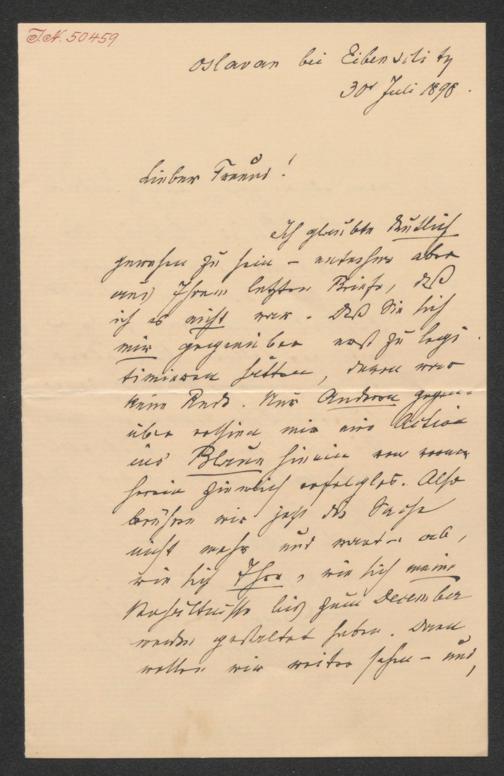 I.N. 50459
Oslavan bei Eibenschitz
30t Juli 1898.
Lieber Freund!
Ich glaubte deutlich
gewesen zu sein – entnehme aber
aus Ihrem letzten Briefe, daß
ich es nicht war. Daß Sie sich
mir gegenüber erst zu legi
timieren hätten, davon war
keine Rede. Nur Anderen gegen-
über erschien mir eine Action
ins Blaue hinein von vorne
herein ziemlich erfolglos. Also
berühren wir jetzt die Sache
nicht mehr und warten ab,
wie sich Ihre, wie sich meine
Verhältnisse bis zum December
werden gestaltet haben. Dann
wollen wir weiter sehen – und,